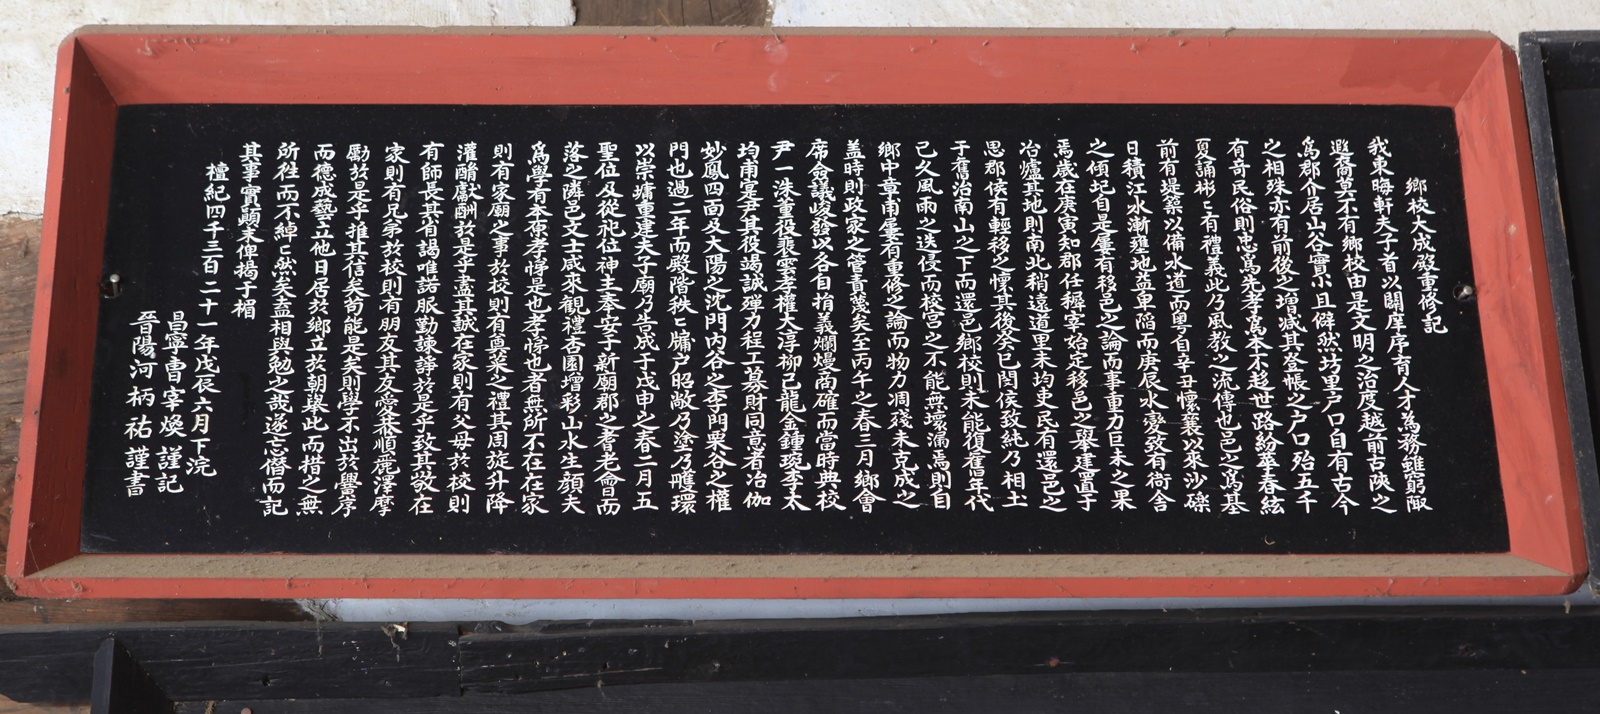 鄉校大成殿重修記
我東晦軒夫子首以闢庠序育人才為務雖窮陬
遐裔莫不有鄉校由是文明之治度越前古陜之
為郡介居山谷實小且僻然坊里戶口自有古今
之相殊亦有前後之增減其登帳之戶口殆五千
有奇民俗則忠為先孝為本不趍世路紛華春絃
夏誦彬〻有禮義此乃風教之流傳也邑之為基
前有堤築以備水道而粤自辛丑懷襄以來沙礫
日積江水漸壅地益卑陷而庚辰水變致有衙舍
之傾圮自是屢有移邑之論而事重力巨未之果
焉歲在庚寅知郡任穉宰始定移邑之舉建置于
冶爐其地則南北稍遠道里未均吏民有還邑之
思郡侯有輕移之懷其後癸巳閔侯致純乃相土
于舊治南山之下而還邑鄉校則未能復舊年代
已久風雨之迭侵而校宮之不能無壞漏焉則自
鄉中章甫屢有重修之論而物力凋殘未克成之
盖時則政家之管責蔑矣至丙午之春三月鄉會
席僉議峻發以各自捐義爛熳商確而當時典校
尹一洙董役裴雲孝權大淳柳己龍金鍾琬李太
均甫寔尹其役竭誠殫力程工募財同意者冶伽
妙鳳四面及大陽之沈門內谷之李門栗谷之權
門也過二年而殿階秩〻牖戶昭敞乃塗乃雘環
以崇墉重建夫子廟乃告成于戊申之春二月五
聖位及從祀位神主奉安于新廟郡之耆老僉而
落之隣邑文士咸來觀禮杏園增彩山水生顔夫
為學有本原孝悌是也孝悌也者無所不在在家
則有家廟之事於校則有奠菜之禮其周旋升降
灌酳獻酬於是乎盡其誠在家則有父母於校則
有師長其有謁唯諾服勤諫諍於是乎致其敬在
家則有兄弟於校則有朋友其友愛恭順麗澤摩
勵於是乎推其信矣苟能是矣則學不出於黌序
而德成藝立他日居於鄉立於朝舉此而措之無
所往而不綽〻然矣盍相與勉之哉遂忘僭而記
其事實顚末俾揭于楣
檀紀四千三百二十一年戊辰六月下浣
昌寧曺宰煥謹記
晉陽河柄祐謹書